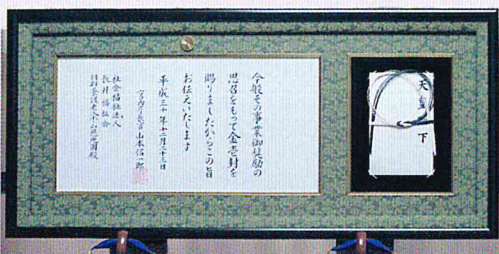 今般その事業御奨励の
思召をもって金壱封を
賜りましたからこの旨
お伝えいたします
平成三十年十二月二十三日
宮内庁長官 山本信一郎
社会福祉法人
長井福祉会
特別養護老人ホーム
天皇
下